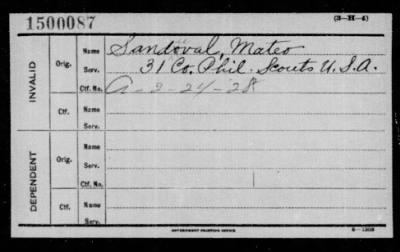 1500087
(3-H-4)
INVALID
Orig.
Name Sandoval, Mateo
Serv. 31 Co. Phil. Scouts U.S.A.
Ctf. No. A-2-24-28
Ctf.
Name
Serv.
DEPENDENT
Orig.
Name
Serv.
Ctf. No.
Ctf.
Name
Serv.
GOVERNMENT PRINTING OFFICE